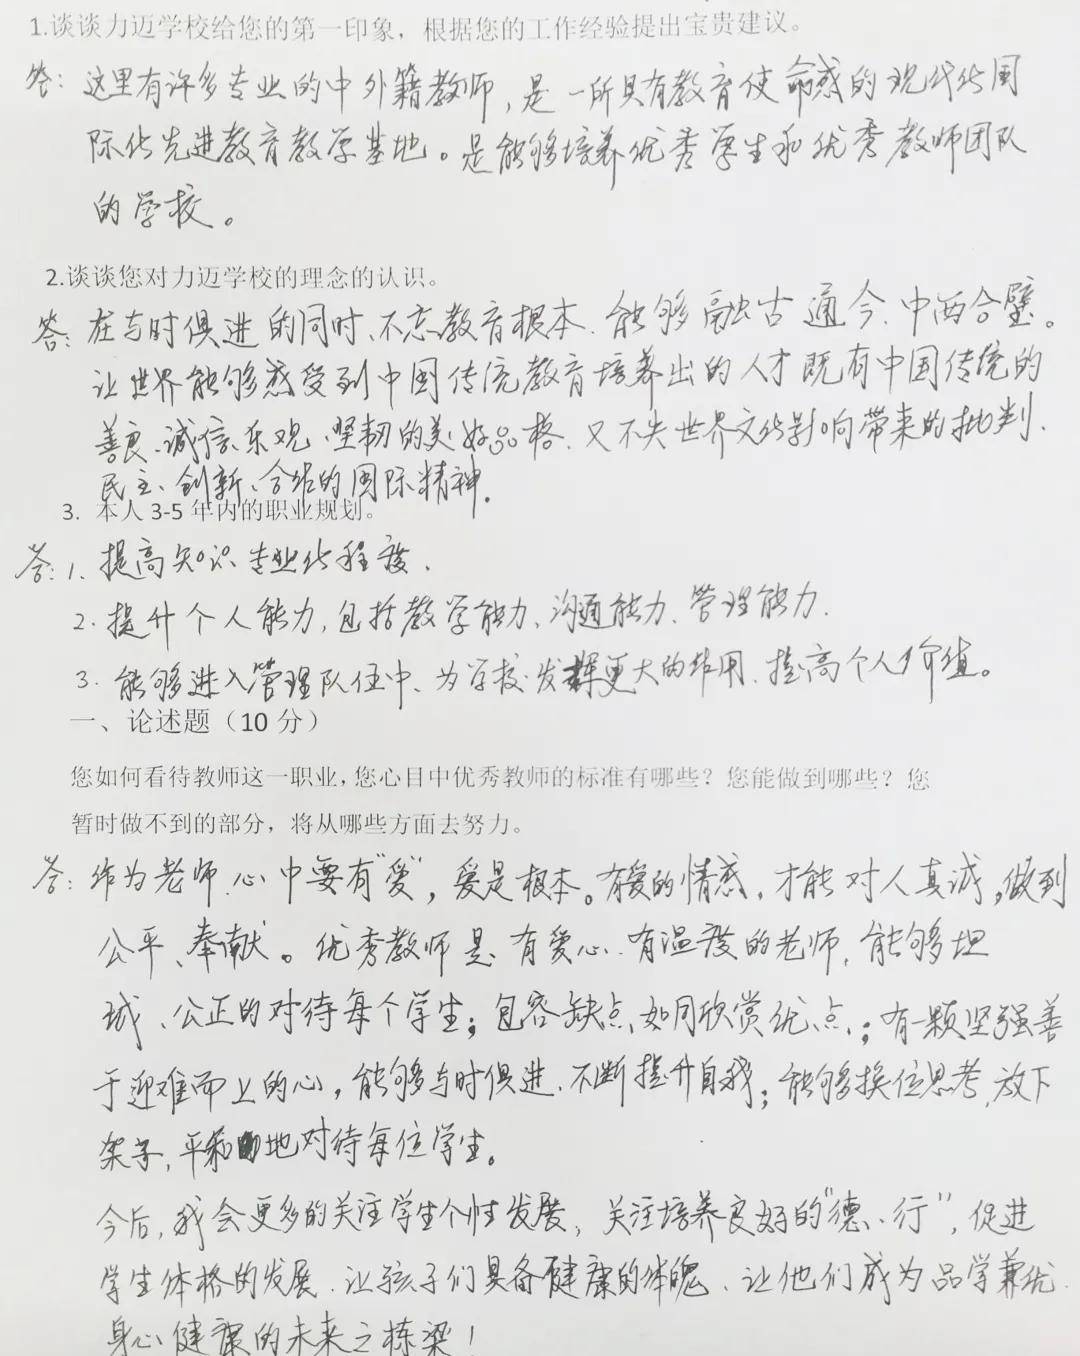 1.谈谈力迈学校给您的第一印象，根据您的工作经验提出宝贵建议。
答：这里有许多专业的中外籍教师，是一所具有教育使命感的现代化国
际化先进教育教学基地。是能够培养优秀学生和优秀教师团队
的学校。
2.谈谈您对力迈学校的理念的认识。
答：在与时俱进的同时、不忘教育根本、能够融古通今、中西合璧。
让世界能够感受到中国传统教育培养出的人才既有中国传统的
善良、诚信、乐观、坚韧的美好品格、又不失世界文化影响带来的批判、
民主、创新、合作的国际精神。
3. 本人3-5年内的职业规划。
答：1、提高知识专业化程度.
2.提升个人能力,包括教学能力、沟通能力、管理能力.
3.能够进入管理队伍中、为学校发挥更大的作用、提高个人价值。
一、论述题（10分）
您如何看待教师这一职业，您心目中优秀教师的标准有哪些？您能做到哪些？您
暂时做不到的部分，将从哪些方面去努力。
答：作为老师心中要有“爱”，爱是根本。有爱的情感，才能对人真诚，做到
公平、奉献。优秀教师是有爱心、有温度的老师，能够坦
诚、公正的对待每个学生；包容缺点如同欣赏优点；有一颗坚强善
于迎难而上的心，能够与时俱进、不断提升自我；能够换位思考,放下
架子,平和地对待每位学生。
今后,我会更多的关注学生个性发展，关注培养良好的“德、行”，促进
学生体格的发展、让孩子们具备健康的体魄、让他们成为品学兼优、
身心健康的未来之栋梁！